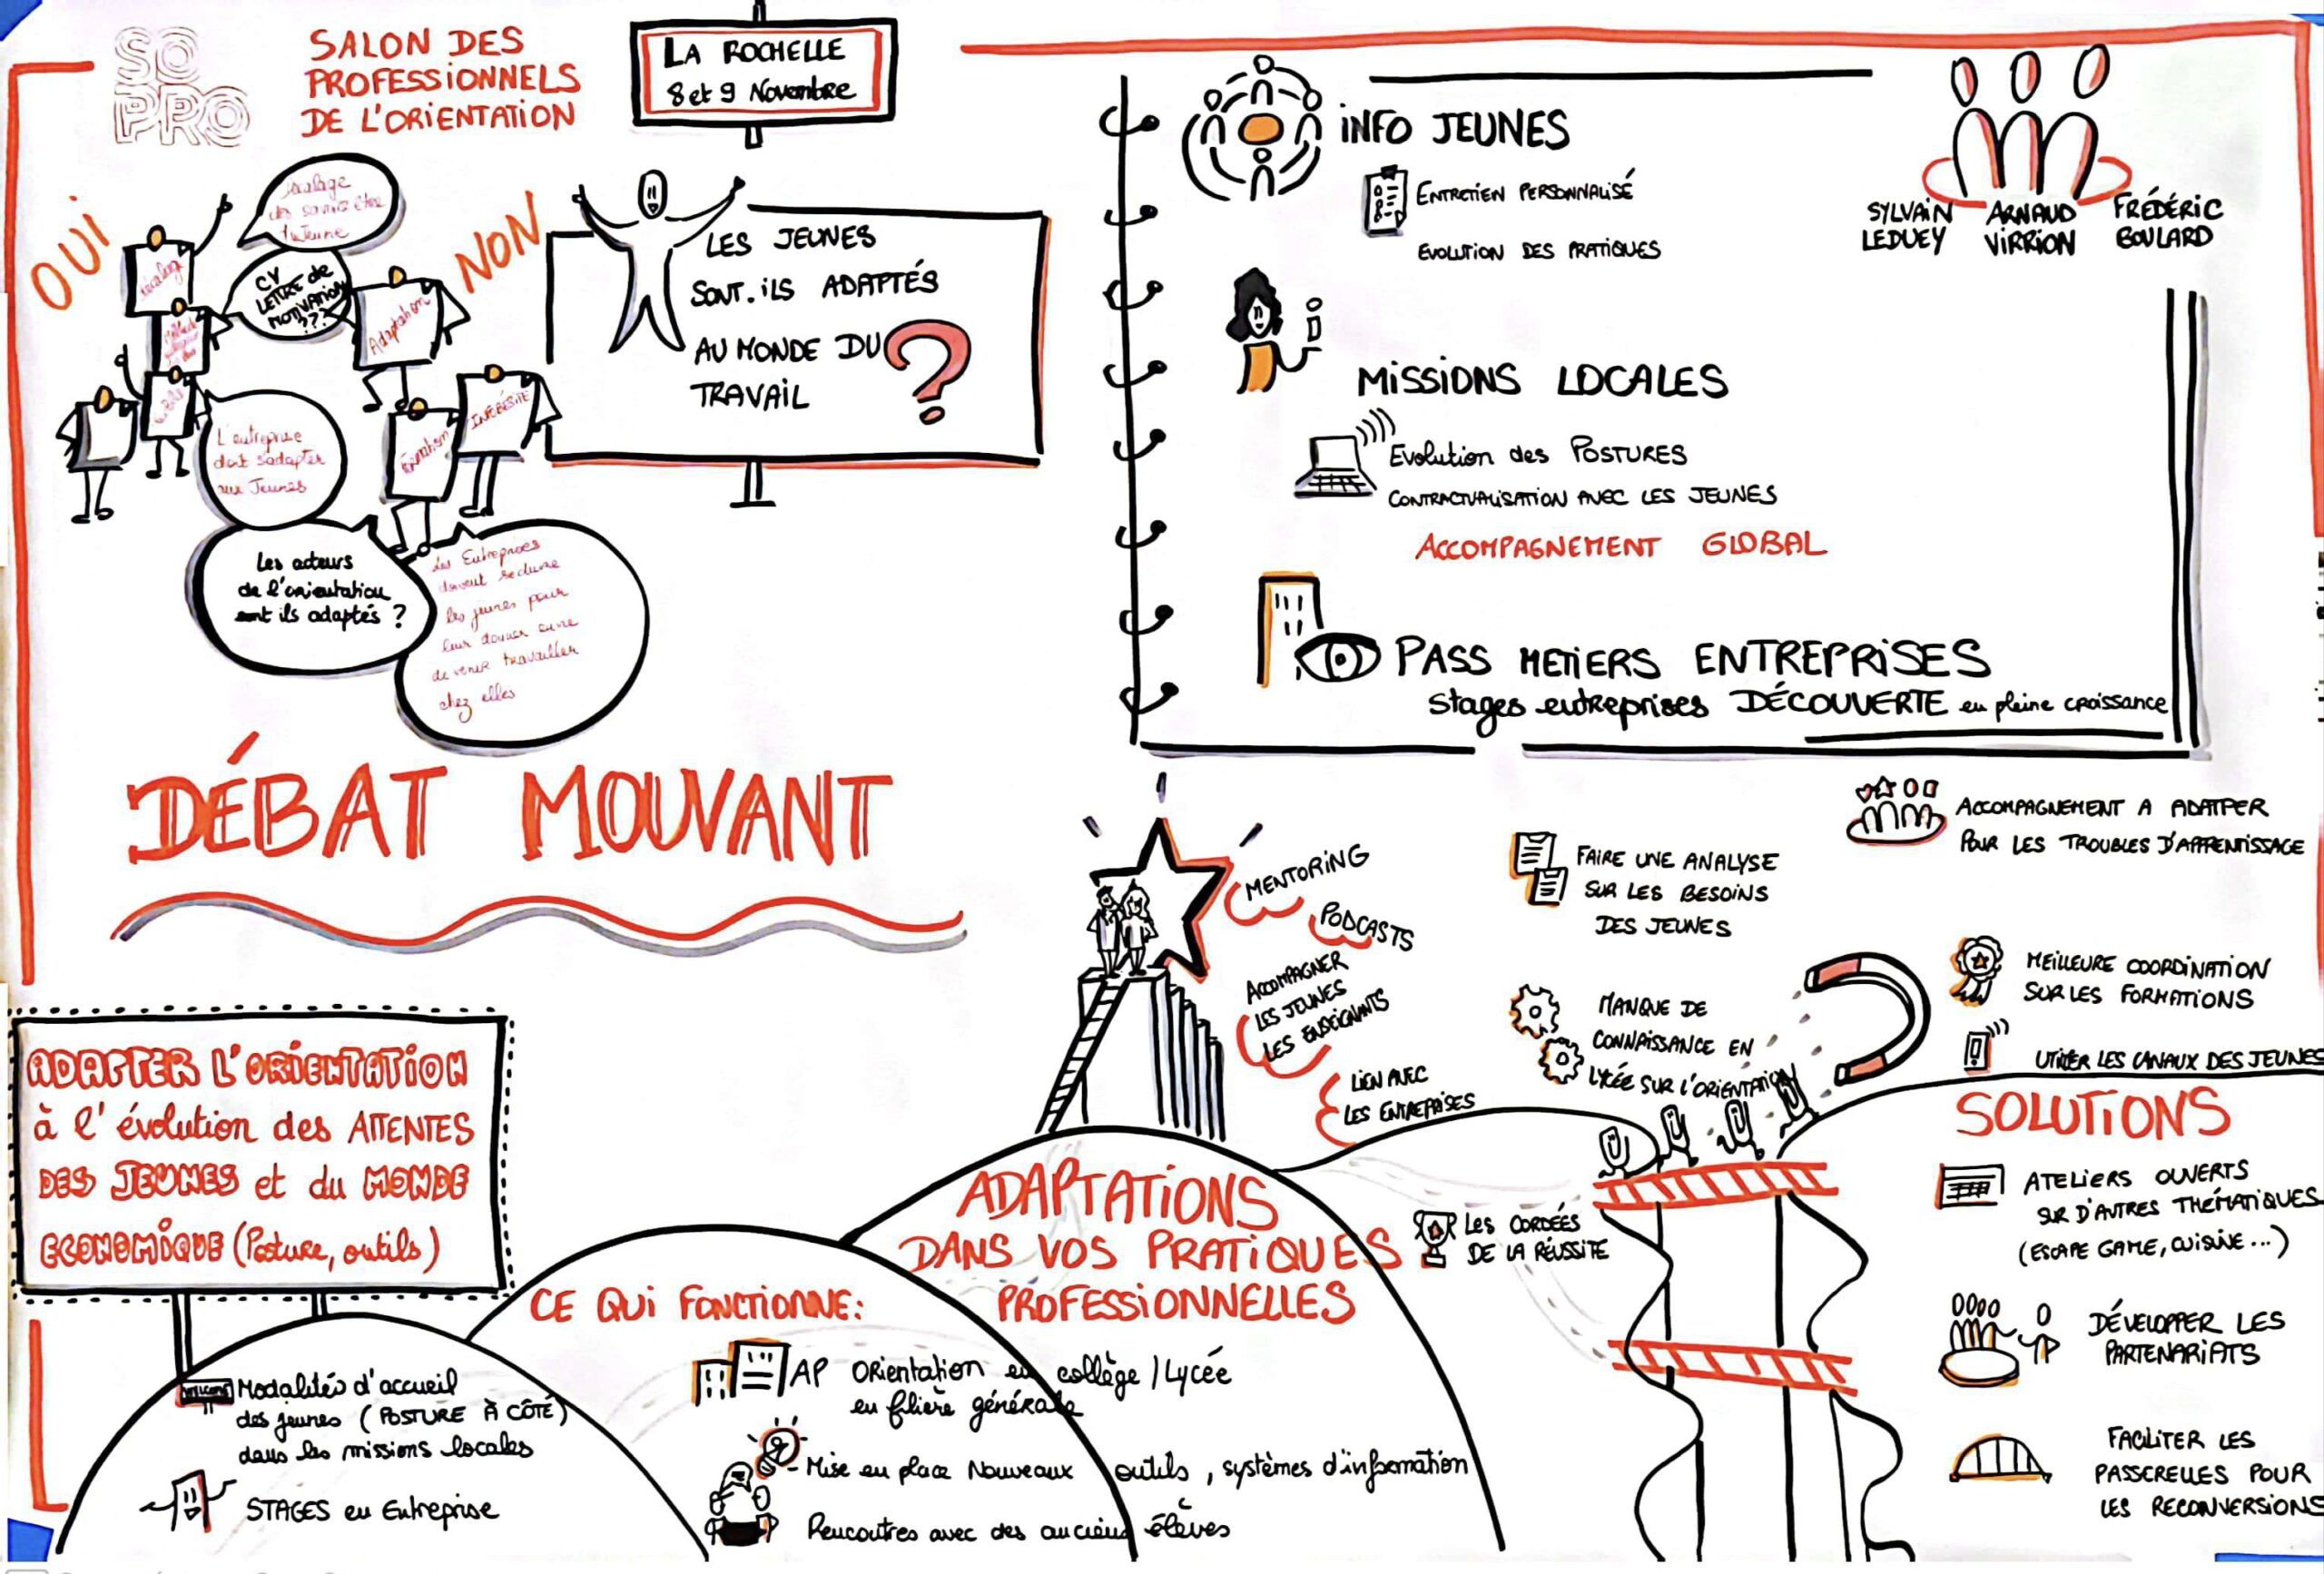 SO
PRO
SALON DES
PROFESSIONNELS
DE L'ORIENTATION
LA ROCHELLE
8 et 9 Novembre
OUI
NON
décalage
des savoirs être
du Jeune
CV
LETTRE de
MOTIVATION
???
Adaptation
L'entreprise
doit s'adapter
aux Jeunes
Les acteurs
de l'orientation
sont ils adaptés ?
Les Entreprises
doivent séduire
les jeunes pour
leur donner envie
de venir travailler
chez elles
LES JEUNES
SONT-ILS ADAPTÉS
AU MONDE DU
TRAVAIL ?
DÉBAT MOUVANT
INFO JEUNES
ENTRETIEN PERSONNALISÉ
EVOLUTION DES PRATIQUES
SYLVAIN
LEDUEY
ARNAUD
VIRRION
FRÉDÉRIC
BOULARD
MISSIONS LOCALES
Evolution des POSTURES
CONTRACTUALISATION AVEC LES JEUNES
ACCOMPAGNEMENT GLOBAL
PASS METIERS ENTREPRISES
Stages entreprises DÉCOUVERTE en pleine croissance
ADAPTER L'ORIENTATION
à l'évolution des ATTENTES
DES JEUNES et du MONDE
ECONOMIQUE (Posture, outils)
Modalités d'accueil
des jeunes (POSTURE À CÔTÉ)
dans les missions locales
STAGES en Entreprise
CE QUI FONCTIONNE:
AP Orientation en collège / Lycée
en filière générale
- Mise en place Nouveaux outils, systèmes d'information
Rencontres avec des anciens élèves
ADAPTATIONS
DANS VOS PRATIQUES
PROFESSIONNELLES
MENTORING
PODCASTS
ACCOMPAGNER
LES JEUNES
LES ENSEIGNANTS
LIEN AVEC
LES ENTREPRISES
Les CORDÉES
DE LA RÉUSSITE
FAIRE UNE ANALYSE
SUR LES BESOINS
DES JEUNES
MANQUE DE
CONNAISSANCE EN
LYCÉE SUR L'ORIENTATION
ACCOMPAGNEMENT A ADATPER
POUR LES TROUBLES D'APPRENTISSAGE
MEILLEURE COORDINATION
SUR LES FORMATIONS
UTILISER LES CANAUX DES JEUNES
SOLUTIONS
ATELIERS OUVERTS
SUR D'AUTRES THÉMATIQUES
(ESCAPE GAME, CUISINE...)
DÉVELOPPER LES
PARTENARIATS
FACILITER LES
PASSERELLES POUR
LES RECONVERSIONS